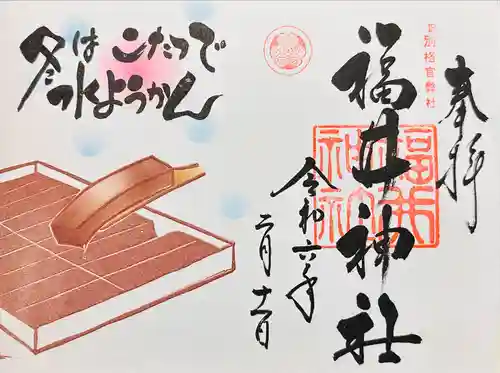 奉拝
旧別格官幣社
福井神社
福井
神社
令和六年
二月十一日
冬はこたつで
水ようかん